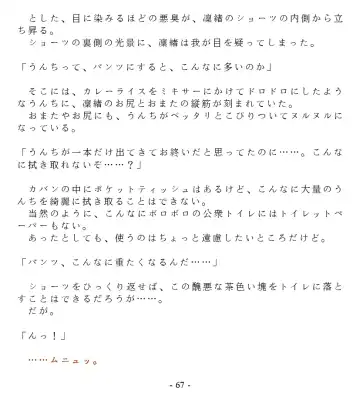 とした、目に染みるほどの悪臭が、凛緒のショーツの内側から立
ち昇る。
ショーツの裏側の光景に、凛緒は我が目を疑ってしまった。
「うんちって、パンツにすると、こんなに多いのか」
そこには、カレーライスをミキサーにかけてドロドロにしたよう
なうんちに、凛緒のお尻とおまたの縦筋が刻まれていた。
おまたやお尻にも、うんちがベッタリとこびりついてヌルヌルに
なっている。
「うんちが一本だけ出てきてお終いだと思ってたのに……。こんな
に拭き取れないぞ……？」
カバンの中にポケットティッシュはあるけど、こんなに大量のう
んちを綺麗に拭き取ることはできない。
当然のように、こんなにボロボロの公衆トイレにはトイレットペ
ーパーもない。
あったとしても、使うのはちょっと遠慮したいところだけど。
「パンツ、こんなに重たくなるんだ……」
ショーツをひっくり返せば、この醜悪な茶色い塊をトイレに落と
すことはできるだろうが……。
だが。
「んっ！」
……ムニュッ。
- 67 -